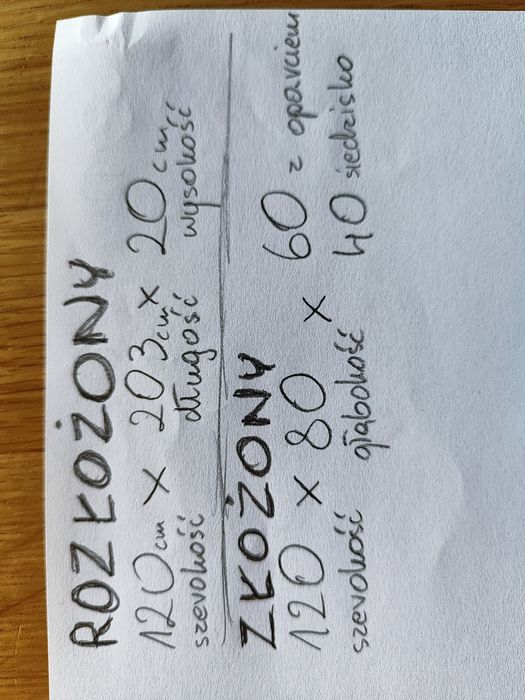 ROZŁOŻONY
120 cm x 203 cm x 20 cm
szerokość długość wysokość
ZŁOŻONY
120 x 80 x 60 z oparciem
szerokość głąbokość 40 siedzisko